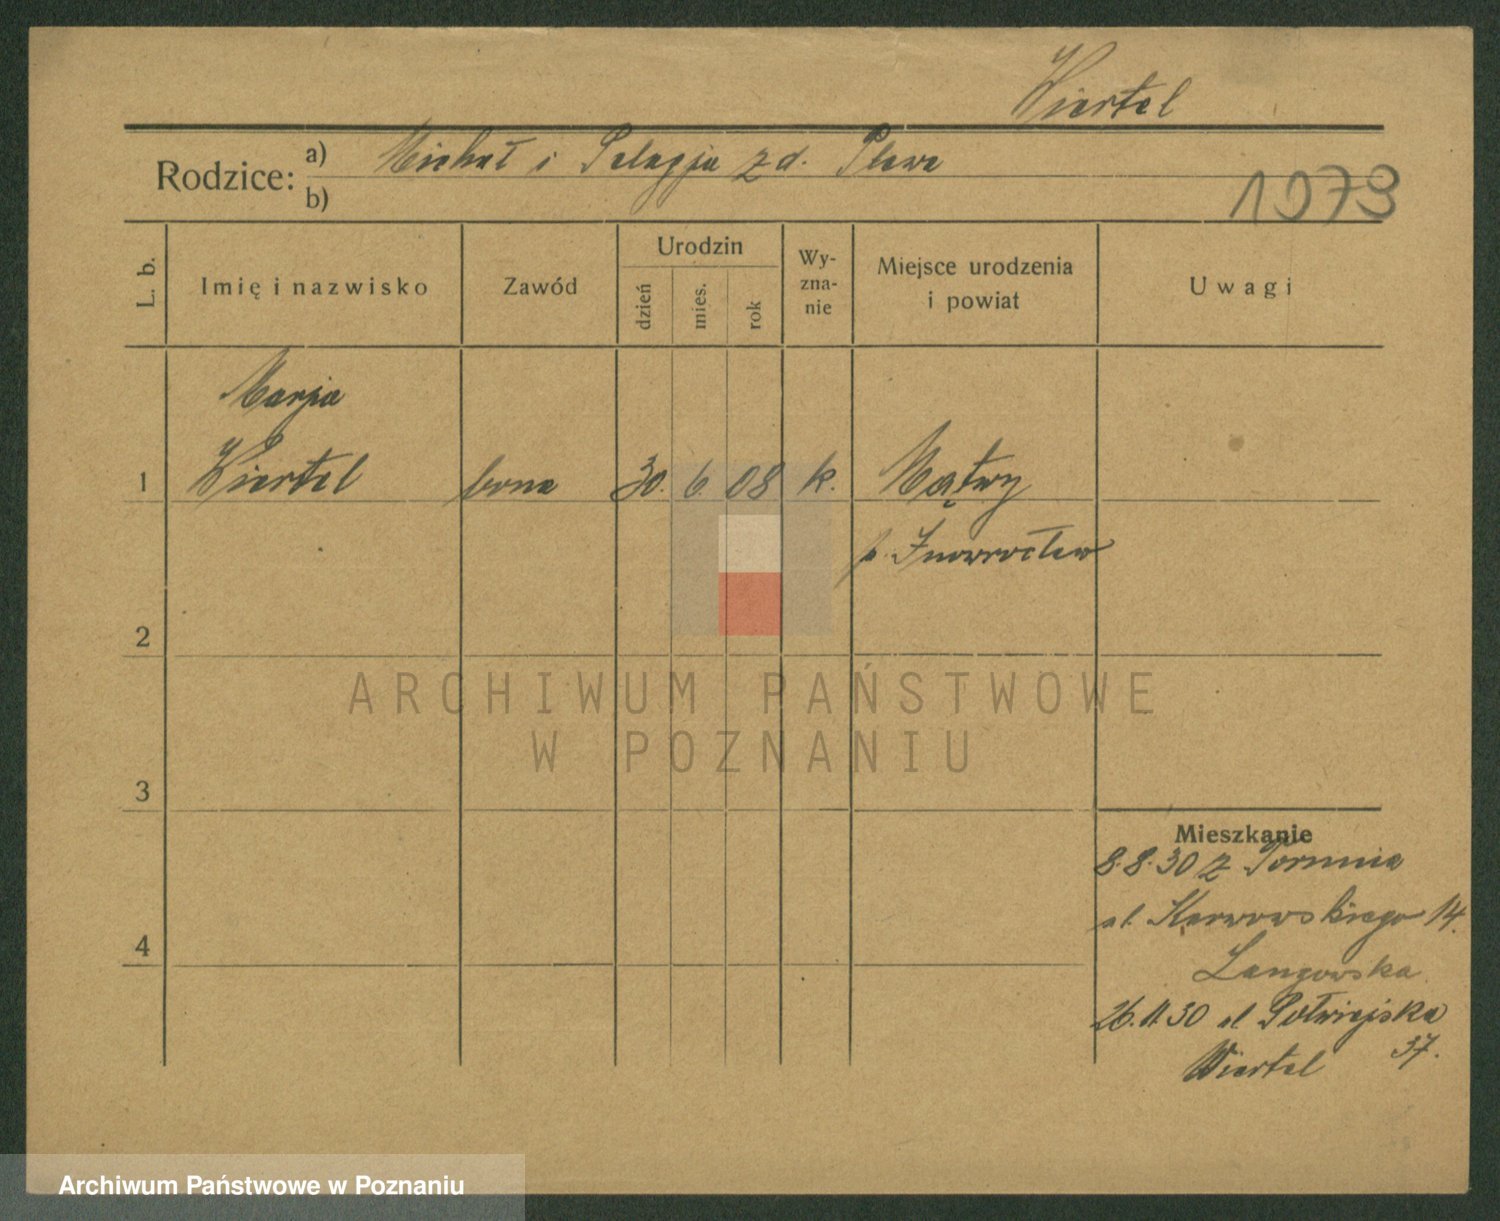 Wiertel
Rodzice:
a) Michał i Pelagja z d. Plewa
b)
1973
L. b.
Imię i nazwisko
Zawód
Urodzin
dzień
mies.
rok
Wy-
zna-
nie
Miejsce urodzenia
i powiat
Uwagi
Marja
1 Wiertel bona 30. 6. 08 k. Mątwy
p. Inowrocław
2
3
4
Mieszkanie
8.8.30 z Torunia
ul. Karwowskiego 14.
Langowska
26.11.30 ul Półwiejska
37.
Wiertel
ARCHIWUM PAŃSTWOWE
W POZNANIU
Archiwum Państwowe w Poznaniu